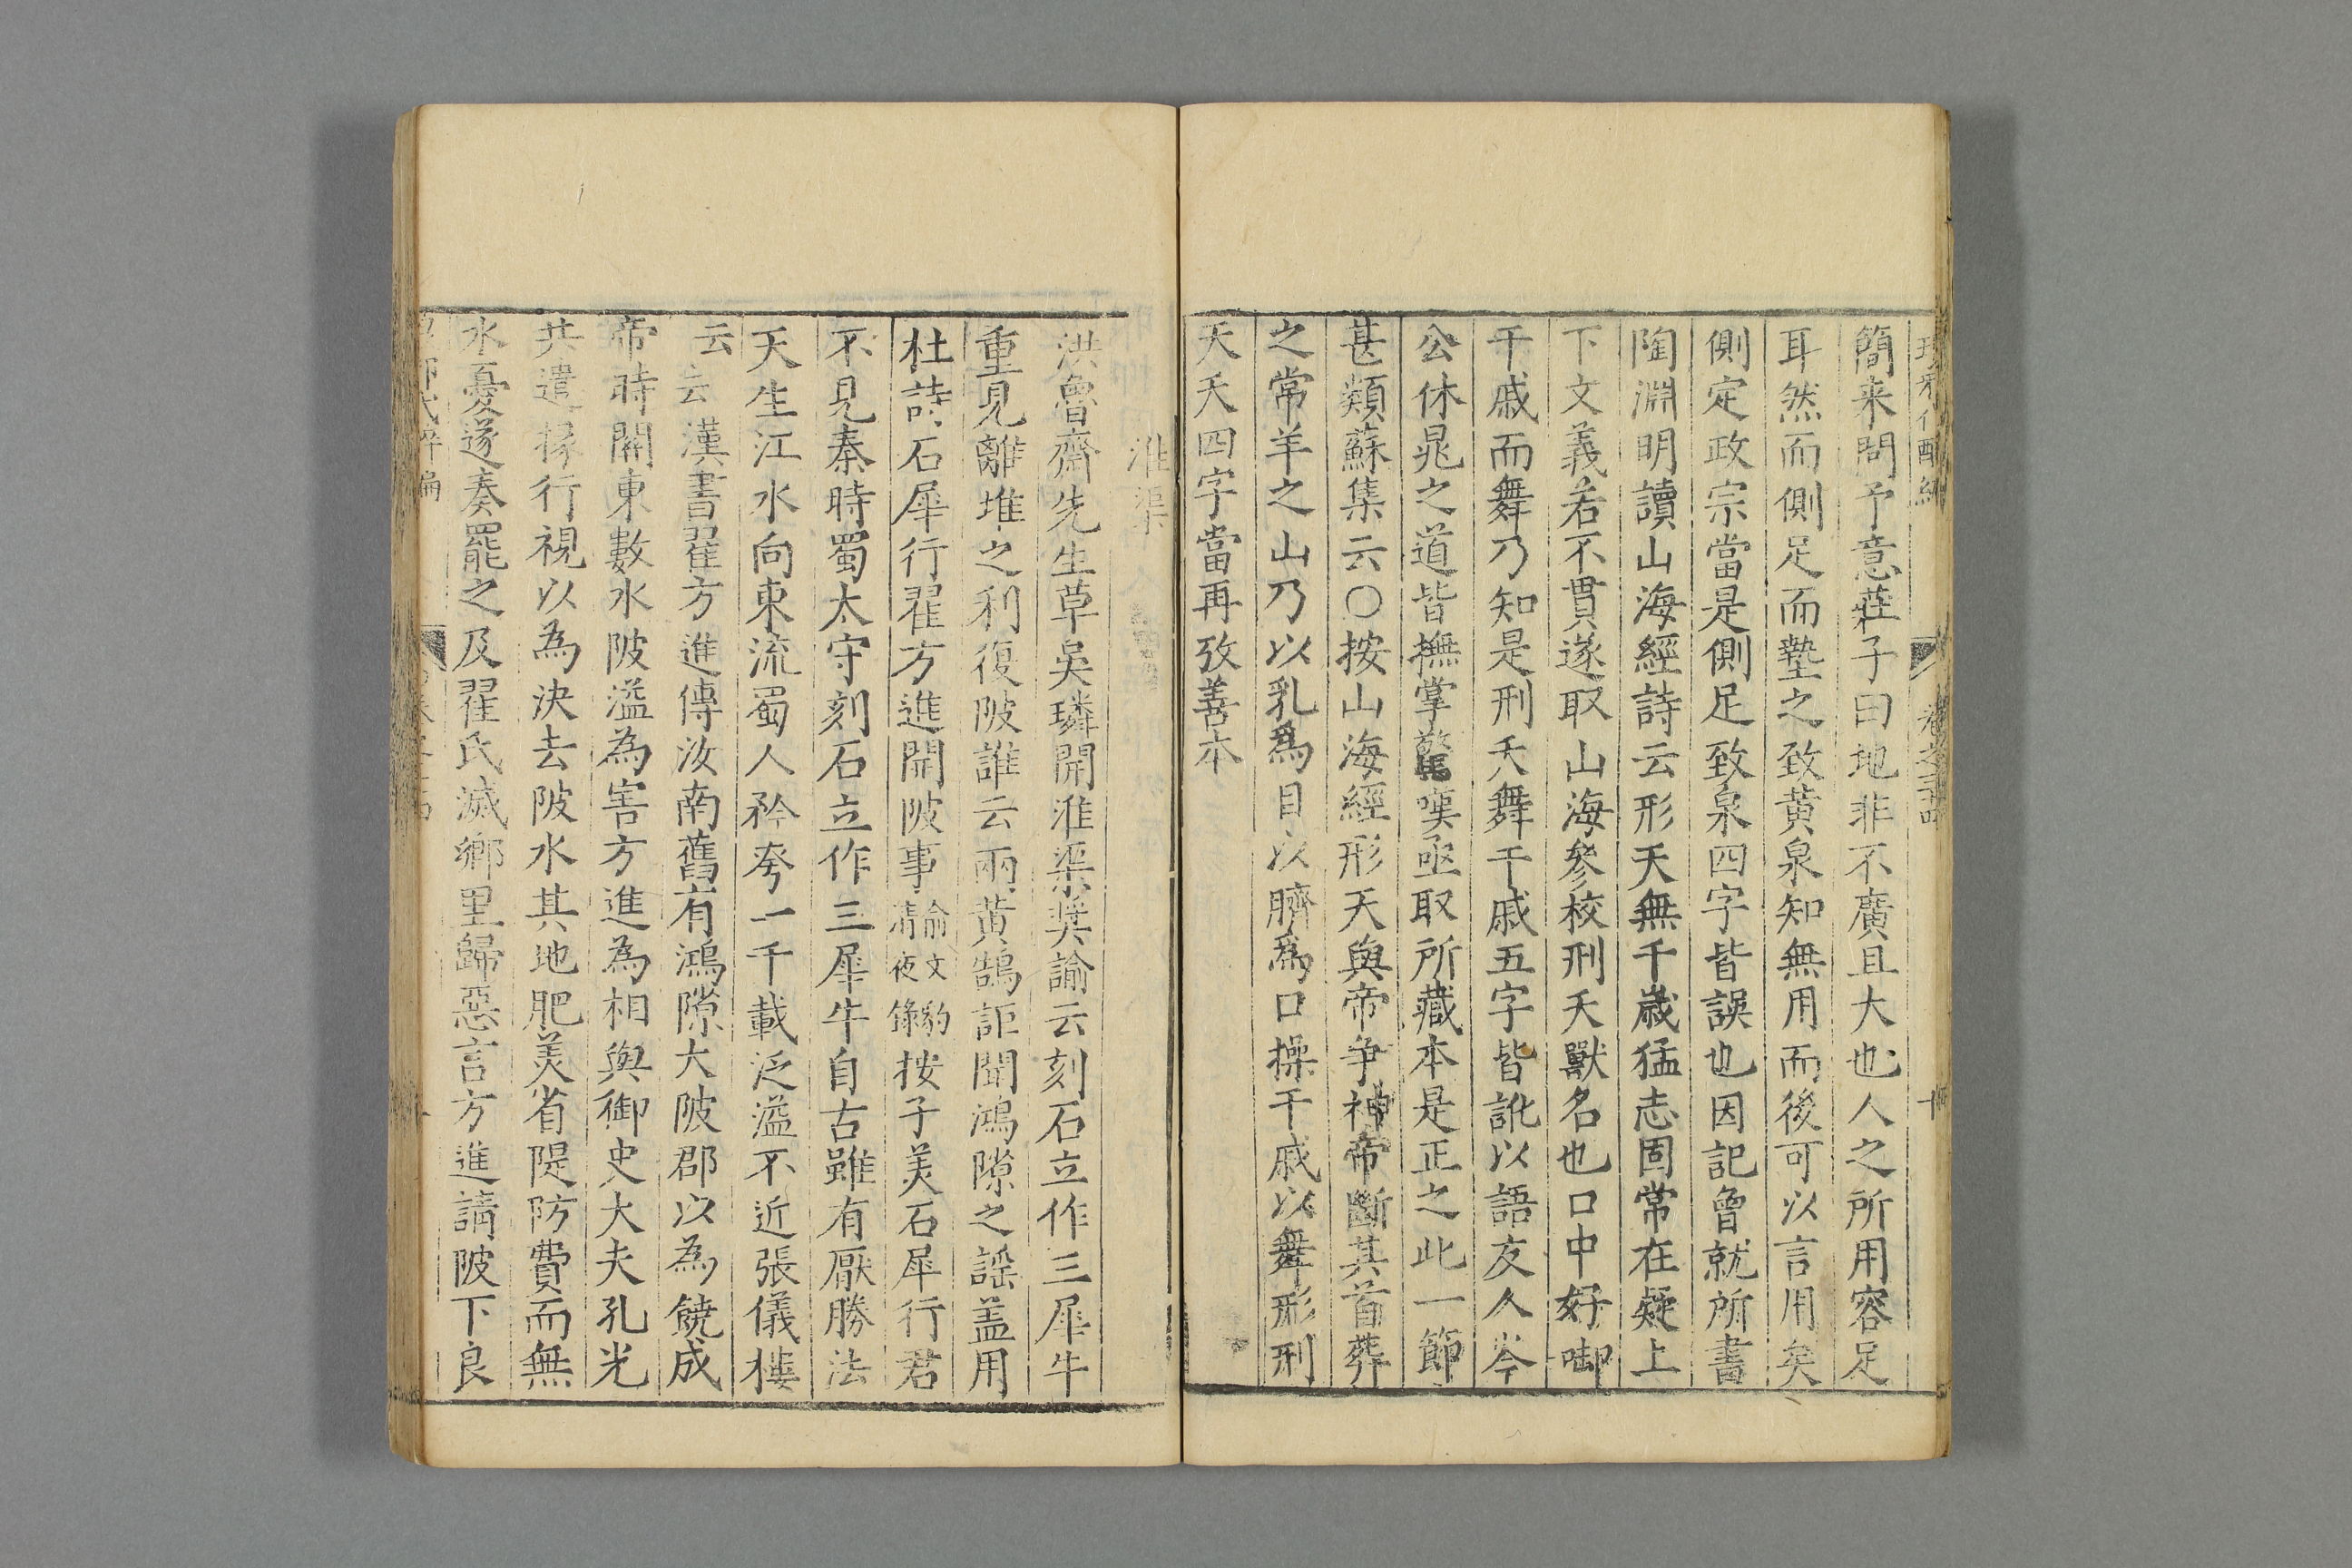 簡来問予意莊子曰地非不廣且大也人之所用容足
耳然而側足而墊之致黄泉知無用而後可以言用矣
側定政宗當是側足致泉四字皆誤也因記曾就所書
陶淵明讀山海經詩云形天無千歲猛志固常在疑上
下文義若不貫遂取山海參校刑天獸名也口中好啣
干戚而舞乃知是刑天舞干戚五字皆訛以語友人岑
公休晁之道皆撫掌驚嘆亟取所藏本是正之此一節
甚類蘇集云○按山海經形天與帝争神帝斷其首葬
之常羊之山乃以乳爲目以臍爲口操干戚以舞形刑
天夭四字當再攷善本
淮渠
洪魯齋先生草吳璘開淮渠奨諭云刻石立作三犀牛
重見離堆之利復陂誰云兩黄鵠詎聞鴻隙之謡盖用
杜詩石犀行翟方進開陂事俞文豹清夜錄按子美石犀行君
不見秦時蜀太守刻石立作三犀牛自古雖有厭勝法
天生江水向東流蜀人矜夸一千載泛溢不近張儀樓
云云漢書翟方進傳汝南舊有鴻隙大陂郡以為饒成
帝時關東數水陂溢為害方進為相與御史大夫孔光
共遣掾行視以為決去陂水其地肥美省隄防費而無
水憂遂奏罷之及翟氏滅鄉里歸惡言方進請陂下良